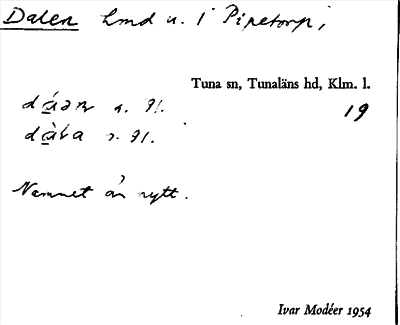 Dalen lmd u. i Pipetorp,
Tuna sn, Tunaläns hd, Klm. l.
19
n. gl.
gl.
Namnet är nytt.
Ivar Modéer 1954